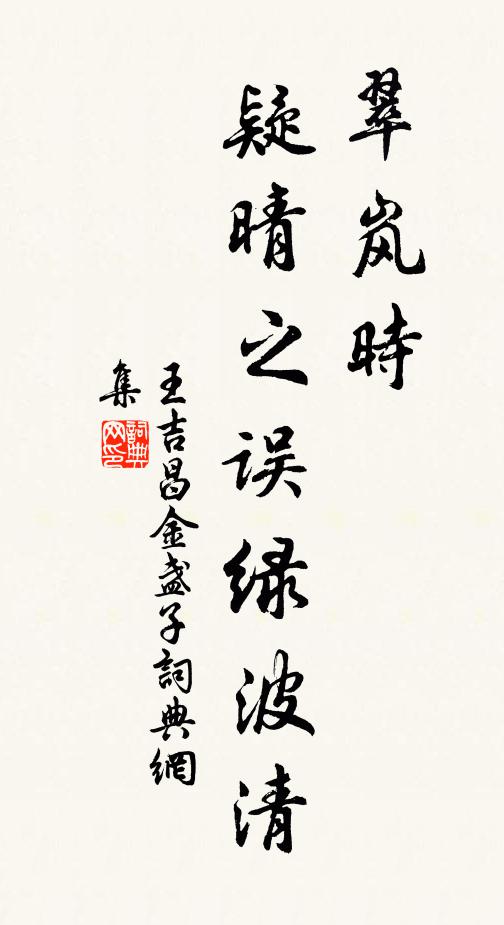 翠岚時
疑晴之误绿波清
王吉昌金盏子詞典網
集
詞典
网印